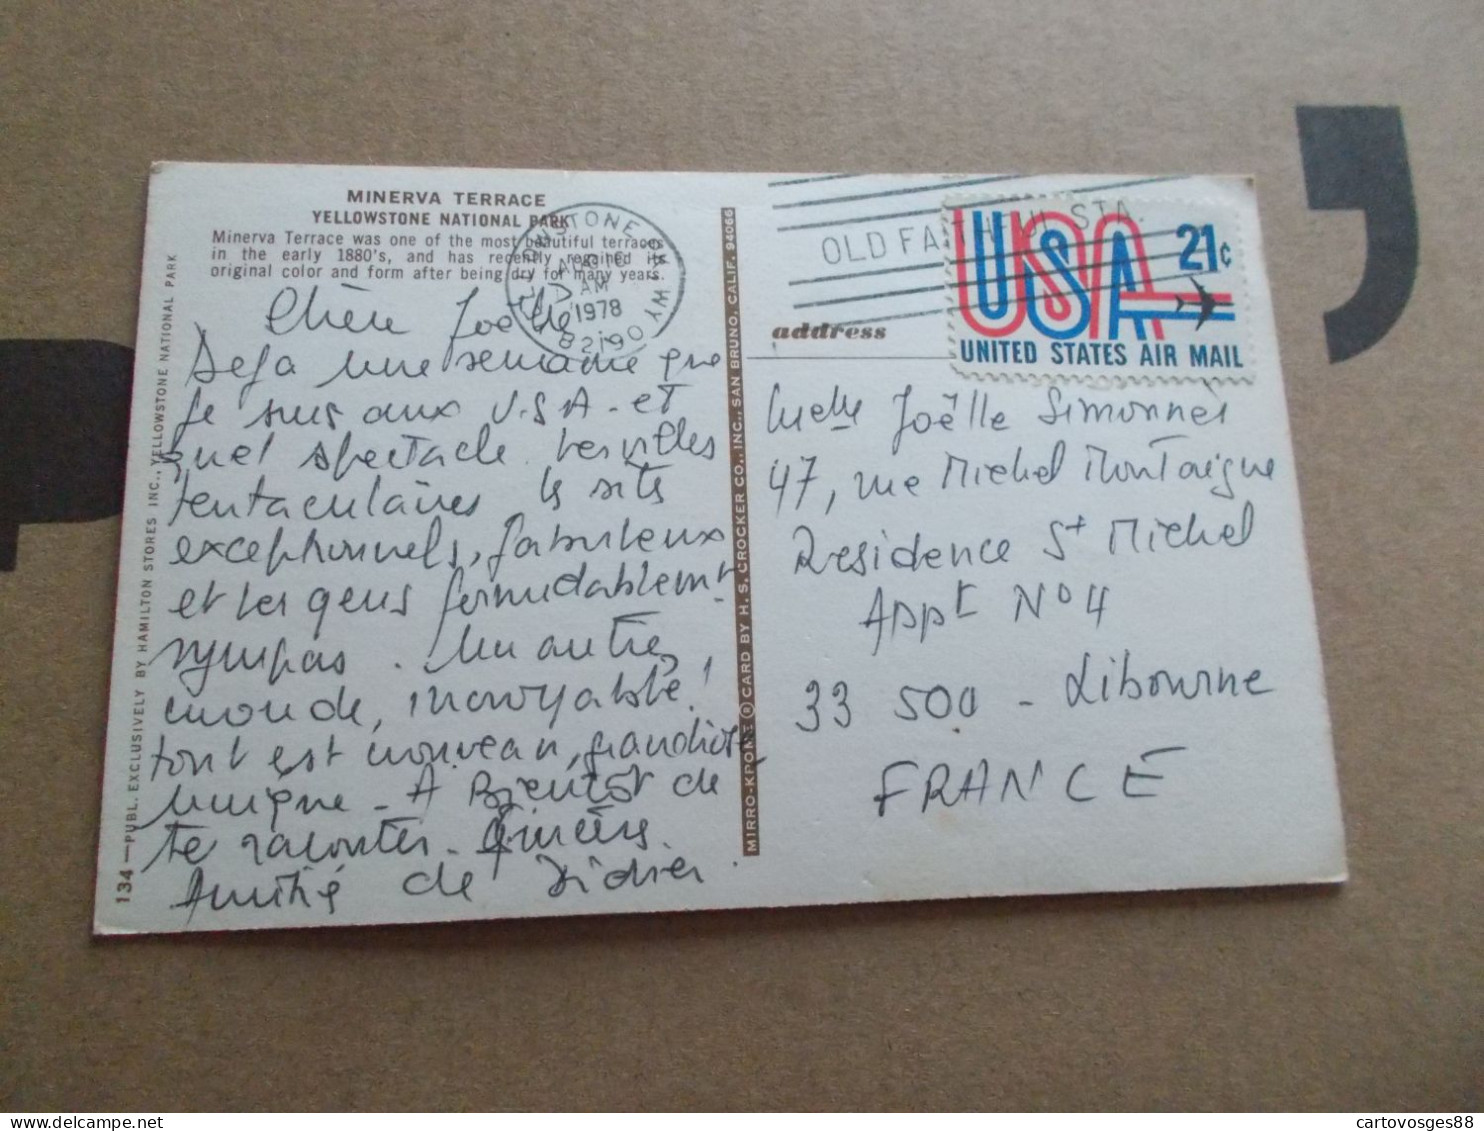 MINERVA TERRACE
YELLOWSTONE NATIONAL PARK
Minerva Terrace was one of the most beautiful terraces
in the early 1880's, and has recently regained its
original color and form after being dry for many years.
Chère Joëlle,
Deja une semaine que
je suis aux U.S.A. et
quel spectacle. Les villes
tentaculaires les sites
exceptionnels, fabuleux
et les gens formidablement
sympas. Un autre
monde, incroyable!
tout est nouveau, grandiose
unique - A Bientôt de
te raconter. Sincère
Amitié de Didier.
134—PUBL. EXCLUSIVELY BY HAMILTON STORES INC., YELLOWSTONE NATIONAL PARK
MIRRO-KROME ® CARD BY H. S. CROCKER CO., INC., SAN BRUNO, CALIF. 94066
YELLOWSTONE N.P. WY
AUG
AM
1978
82190
OLD FAITHFUL STA.
USA
21¢
UNITED STATES AIR MAIL
address
Melle Joëlle Simonnet
47, rue Michel Montaigne
Residence St Michel
Appt No 4
33 500 - Libourne
FRANCE
cartovosges88